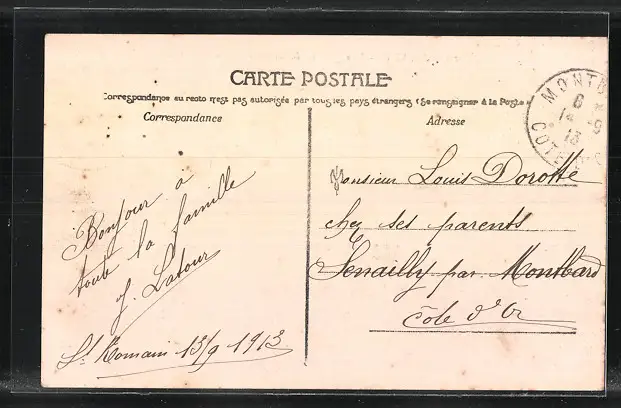 CARTE POSTALE
Correspondance au recto n'est pas autorisée par tous les pays étrangers (Se renseigner à la Poste)
Correspondance
Bonjour à
toute la famille
J. Latour
St Romain 13/9 1913
Adresse
Monsieur Louis Dorotte
chez ses parents
Senailly par Montbard
Côte d'Or
MONTB
6
14 -9
13
COTE